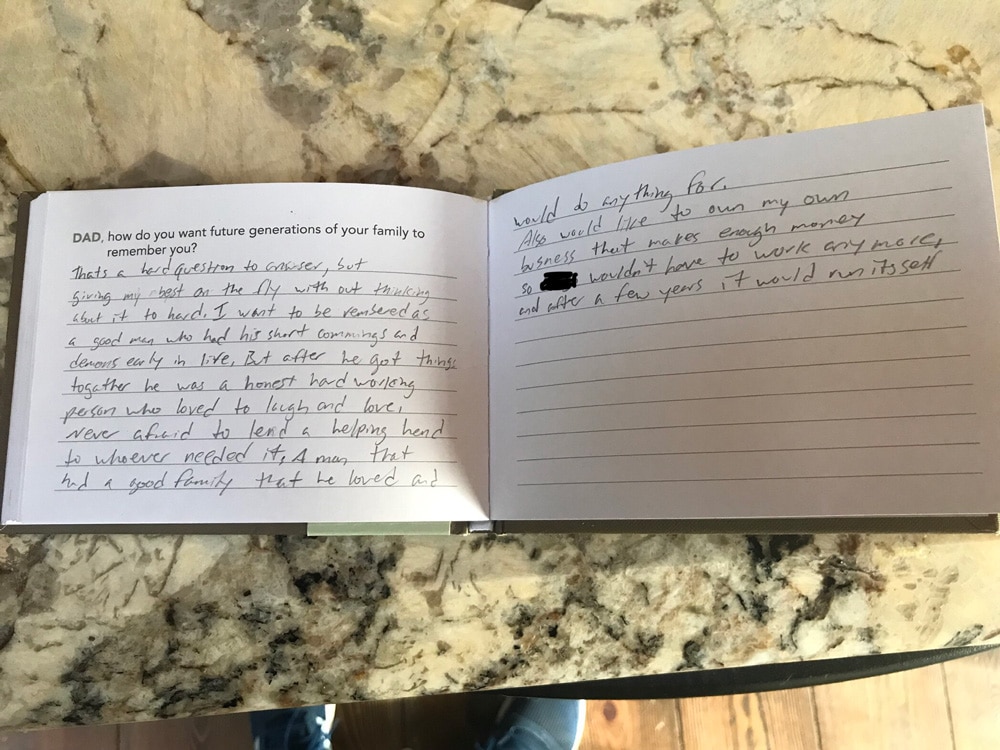 DAD, how do you want future generations of your family to
remember you?
Thats a hard question to answer, but
giving my best on the fly with out thinking
about it to hard. I want to be rembered as
a good man who had his short commings and
demons early in live. But after he got things
together he was a honest hard working
person who loved to laugh and love,
never afraid to lend a helping hend
to whoever needed it, A man that
had a good family that he loved and
would do anything for.
Also would like to own my own
busness that makes enough money
so wouldn't have to work any more,
and after a few years it would run itsself